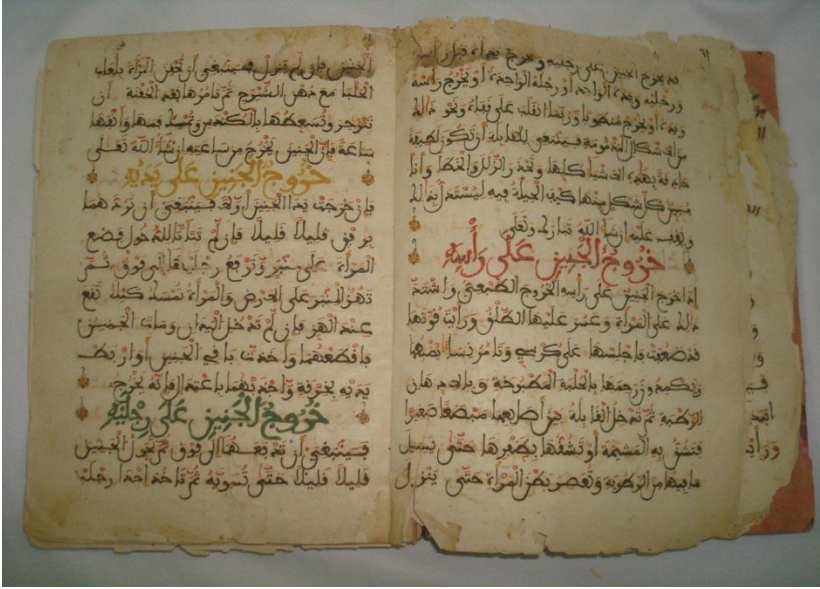 قد يخرج الجنين على رجليه ويخرج بدنه قبل رأسه
ورجليه ويده الواحدة أو رجله الواحدة أو يخرج رأسه
ويده أو يخرج منطويا وربما انقلب على قفاه ونحو ذلك
من الاشكال المذمومة فينبغي للقابلة أن تكون لطيفة
بهذه الاشياء كلها وتحذر الزلل والخطأ وأنا
مبين كل شكل منها كيف الحيلة فيه ليستدل بذلك
ويقف عليه إن شاء الله تبارك وتعلى
خروج الجنين على رأسه
إذا خرج الجنين على رأسه الخروج الطبيعي واشتد
ذلك على المرأة وعسر عليها الطلق ورأيت قوتها
قد ضعفت فاجلسها على كرسي وتامر نسا يضبطها
وتكمد رحمها بالحلبة المطبوخة وبالادهان
الرطبة ثم تدخل القابلة بين أصابعها مبضعا صغيرا
فتشق به المشيمة أو تشقها بظفرها حتى يسيل
ما فيها من الرطوبة وتعصر بطن المرأة حتى ينزل
الجنين فإن لم ينزل فينبغي أن تحقن المرأة بلعاب
الحلبا مع دهن الشيرج ثم تامرها بعد الحقنة أن
تتزحر وتسعطها بالكندس وتمسك فمها وأنفها
ساعة فإن الجنين يخرج من ساعته إن شاء الله تعلى
خروج الجنين على يديه
فإن خرجت يدا الجنين أولا فينبغي أن تردهما
برفق قليلا قليلا فإن لم تتأتا للدخول فضع
المرأة على منبر وترفع رجليها الى فوق ثم
تهز المنبر على الارض والمرأة تمسك كيلا تقع
عند الهز فإن لم تدخل اليدان ومات الجنين
فاقطعهما واجذب باقي الجنين أو اربط
يديه بخرقة واجذبهما باعتدال فإنه يخرج
خروج الجنين على رجليه
فينبغي أن تدفعهما الى فوق ثم تحول الجنين
قليلا قليلا حتى تسويه ثم تاخذ احدا رجليه